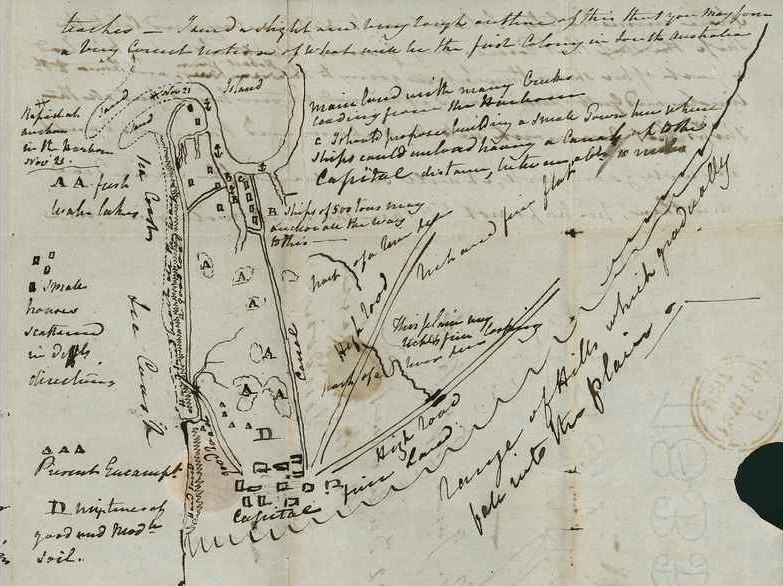 teaches — I send a slight and very rough outline of this that you may form
a very correct notion of what will be the first Colony in South Australia
Rapid at
anchor
in the harbor
Nov 21.
Sand
Sand
Nov 21
Island
main land with many Creeks
leading from the Harbour
C I should propose building a small Town here where
ships could unload having a Canal up to the
Capital distance, between, able miles
A A fresh
water lakes
B Ships of 500 tons may
anchor all the way
to this —
Sea Coast
Sea Coast
small
houses
scattered
in difft.
directions
Canal
part of a river
High load
rich and fine flat
This plain very
rich & fine
part of a river
High load
fine land.
Range of Hills which gradually
fall into the plain
Present Encampt.
D mixture of
good and Modte
soil.
A
A
A
A
A
A
A
D
Capital